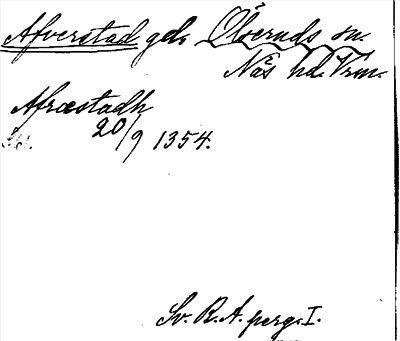 Afverstad gd. Ölseruds sn.
Näs hd. Vrm.
Afræstadh
20/9 1354.
Sv. R. A. perg. I.